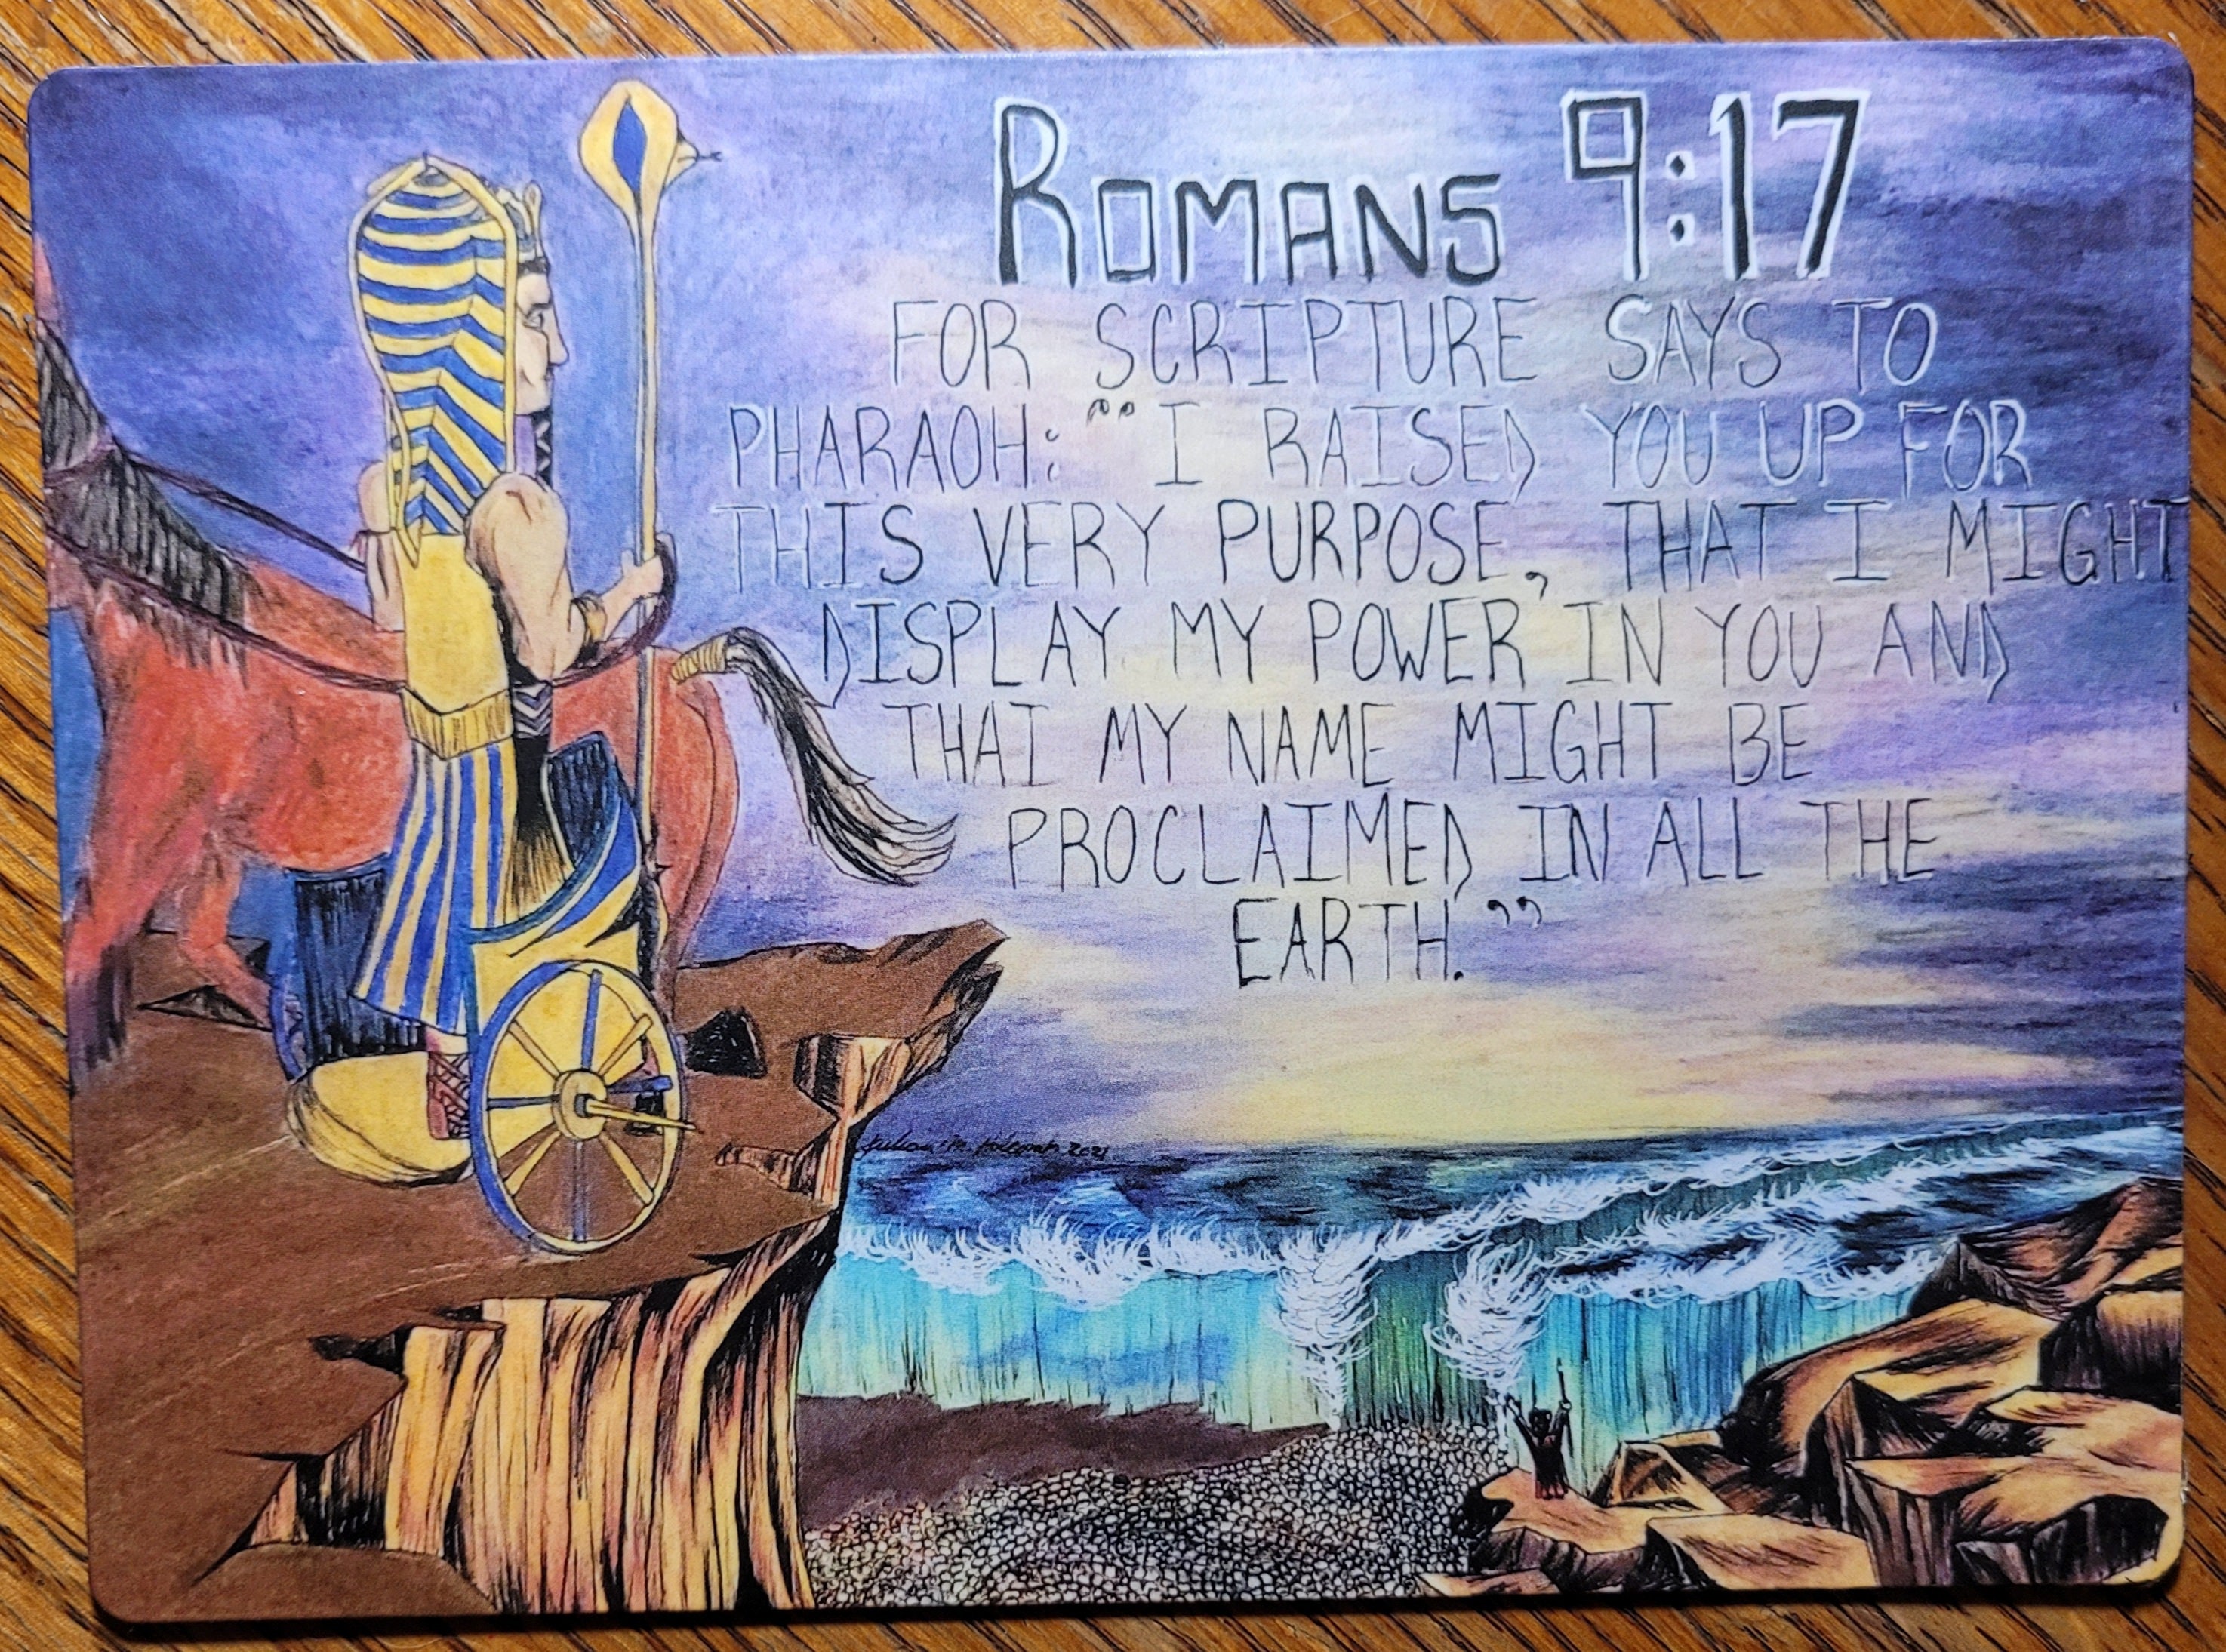 ROMANS 9:17
FOR SCRIPTURE SAYS TO
PHARAOH: "I RAISED YOU UP FOR
THIS VERY PURPOSE, THAT I MIGHT
DISPLAY MY POWER IN YOU AND
THAT MY NAME MIGHT BE
PROCLAIMED IN ALL THE
EARTH."
M. 2021